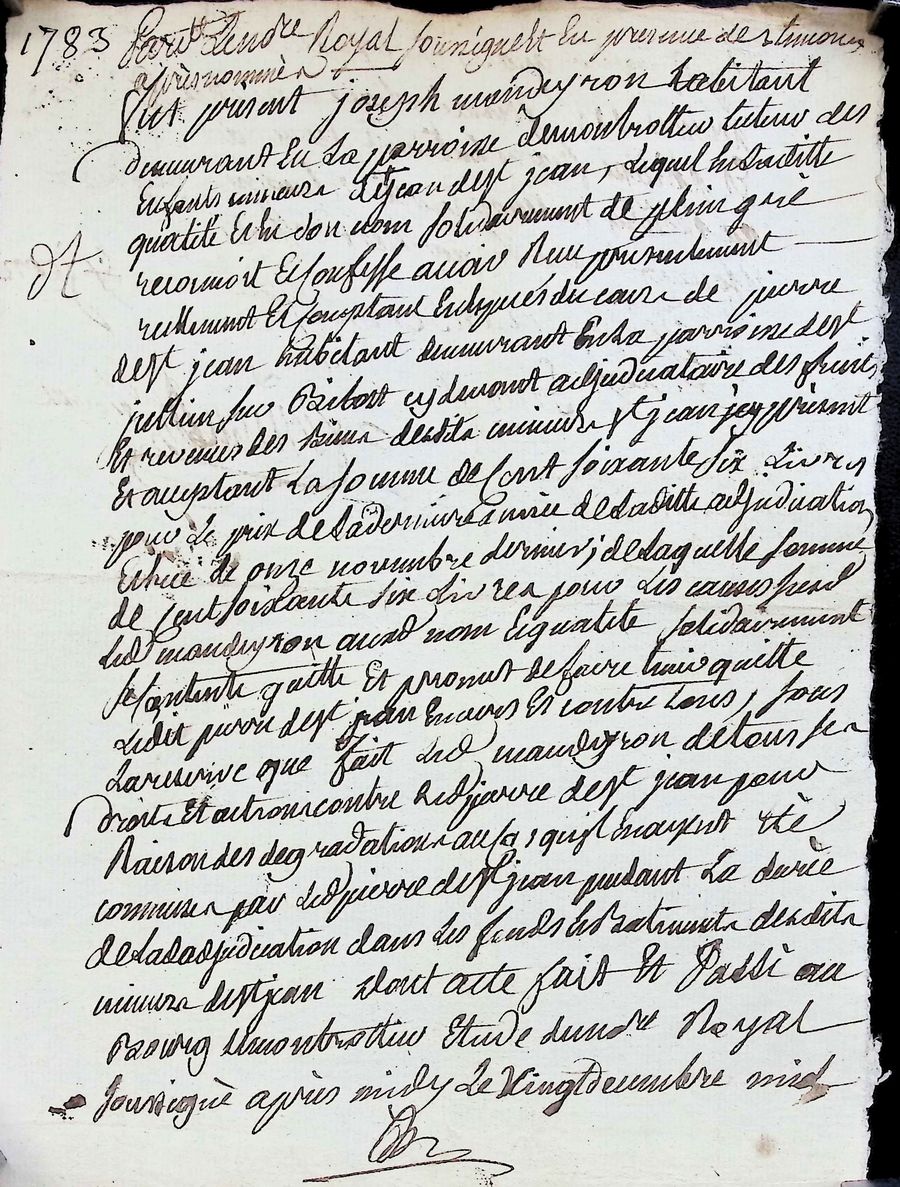 1783 Pardt Lenore Royal soussigné et En presence des temoins
apres nommés
fut présent joseph mandeyron habitant
demeurant En La parroisse de montrottier tuteur des
Enfants mineurs de jean de st jean, Lequel En Laditte
qualité et En son nom solidairement de plein gré
reconnoit Et Confesse avoir Reçu presentement
dt
reellement Et Comptant En Especes du cours de pierre
de st jean habitant demeurant En La parroisse de st
jullien sur Bibost cy devant adjudicataire des fruits
Et revenus des biens desdits mineurs st jean jcy present
Et acceptant La somme de Cent soixante six Livres
pour Le prix de La derniere année de Laditte adjudication
Echue Le onze novembre dernier; de Laquelle somme
de cent soixante six Livres pour Les causes
Led mandeyron aud nom Et qualité solidairement
se Contente quitte Et promet de faire tenir quitte
Ledit pierre de st jean Envers Et contre tous, sous
La reserve que fait Led mandeyron de tous ses
droits Et actions contre Led pierre de st jean pour
Raison des degradations au cas qu'jl En ayent été
commises par Led pierre de st jean pendant La durée
de Lad adjudication dans Les fonds Et Batiments desdits
mineurs de st jean dont acte fait Et Passé au
Bourg de montrottier Etude du nore Royal
soussigné apres midy Le Vingt decembre mil